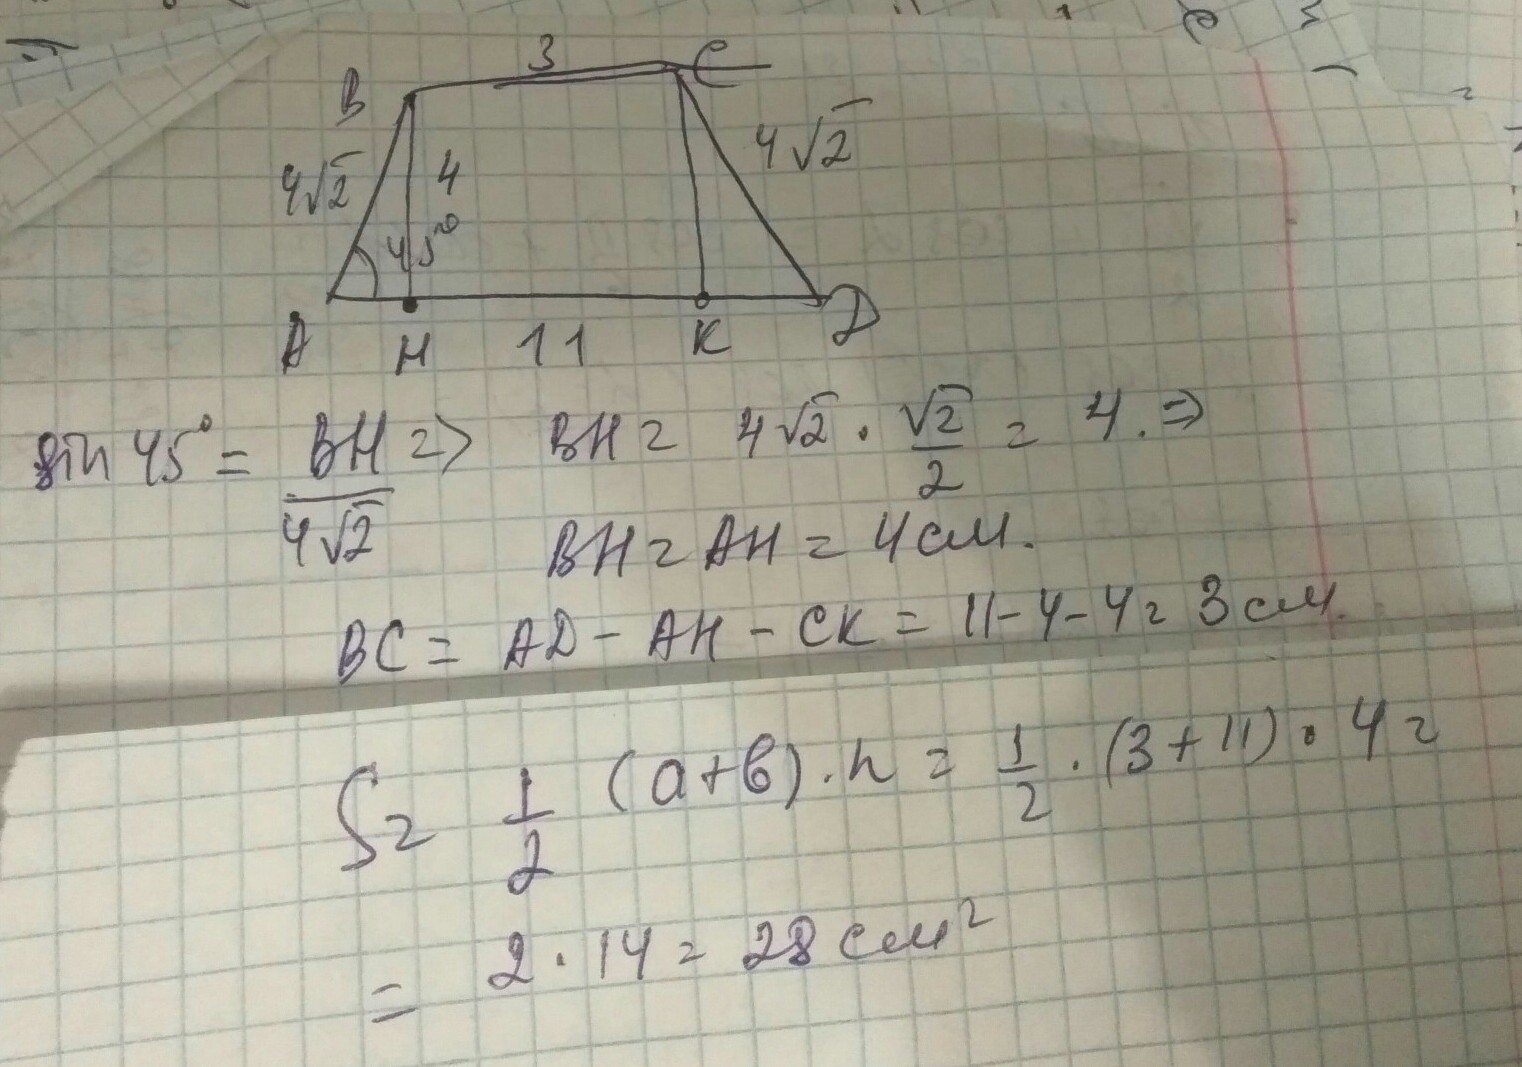 3
B C
4√2 4 4√2
45°
A H 11 K D
sin 45° = BH/4√2 => BH = 4√2 · √2/2 = 4. =>
BH = AH = 4 см.
BC = AD - AH - CK = 11-4-4 = 3 см.
S = 1/2 (a+b) · h = 1/2 · (3+11) · 4 =
= 2 · 14 = 28 см²